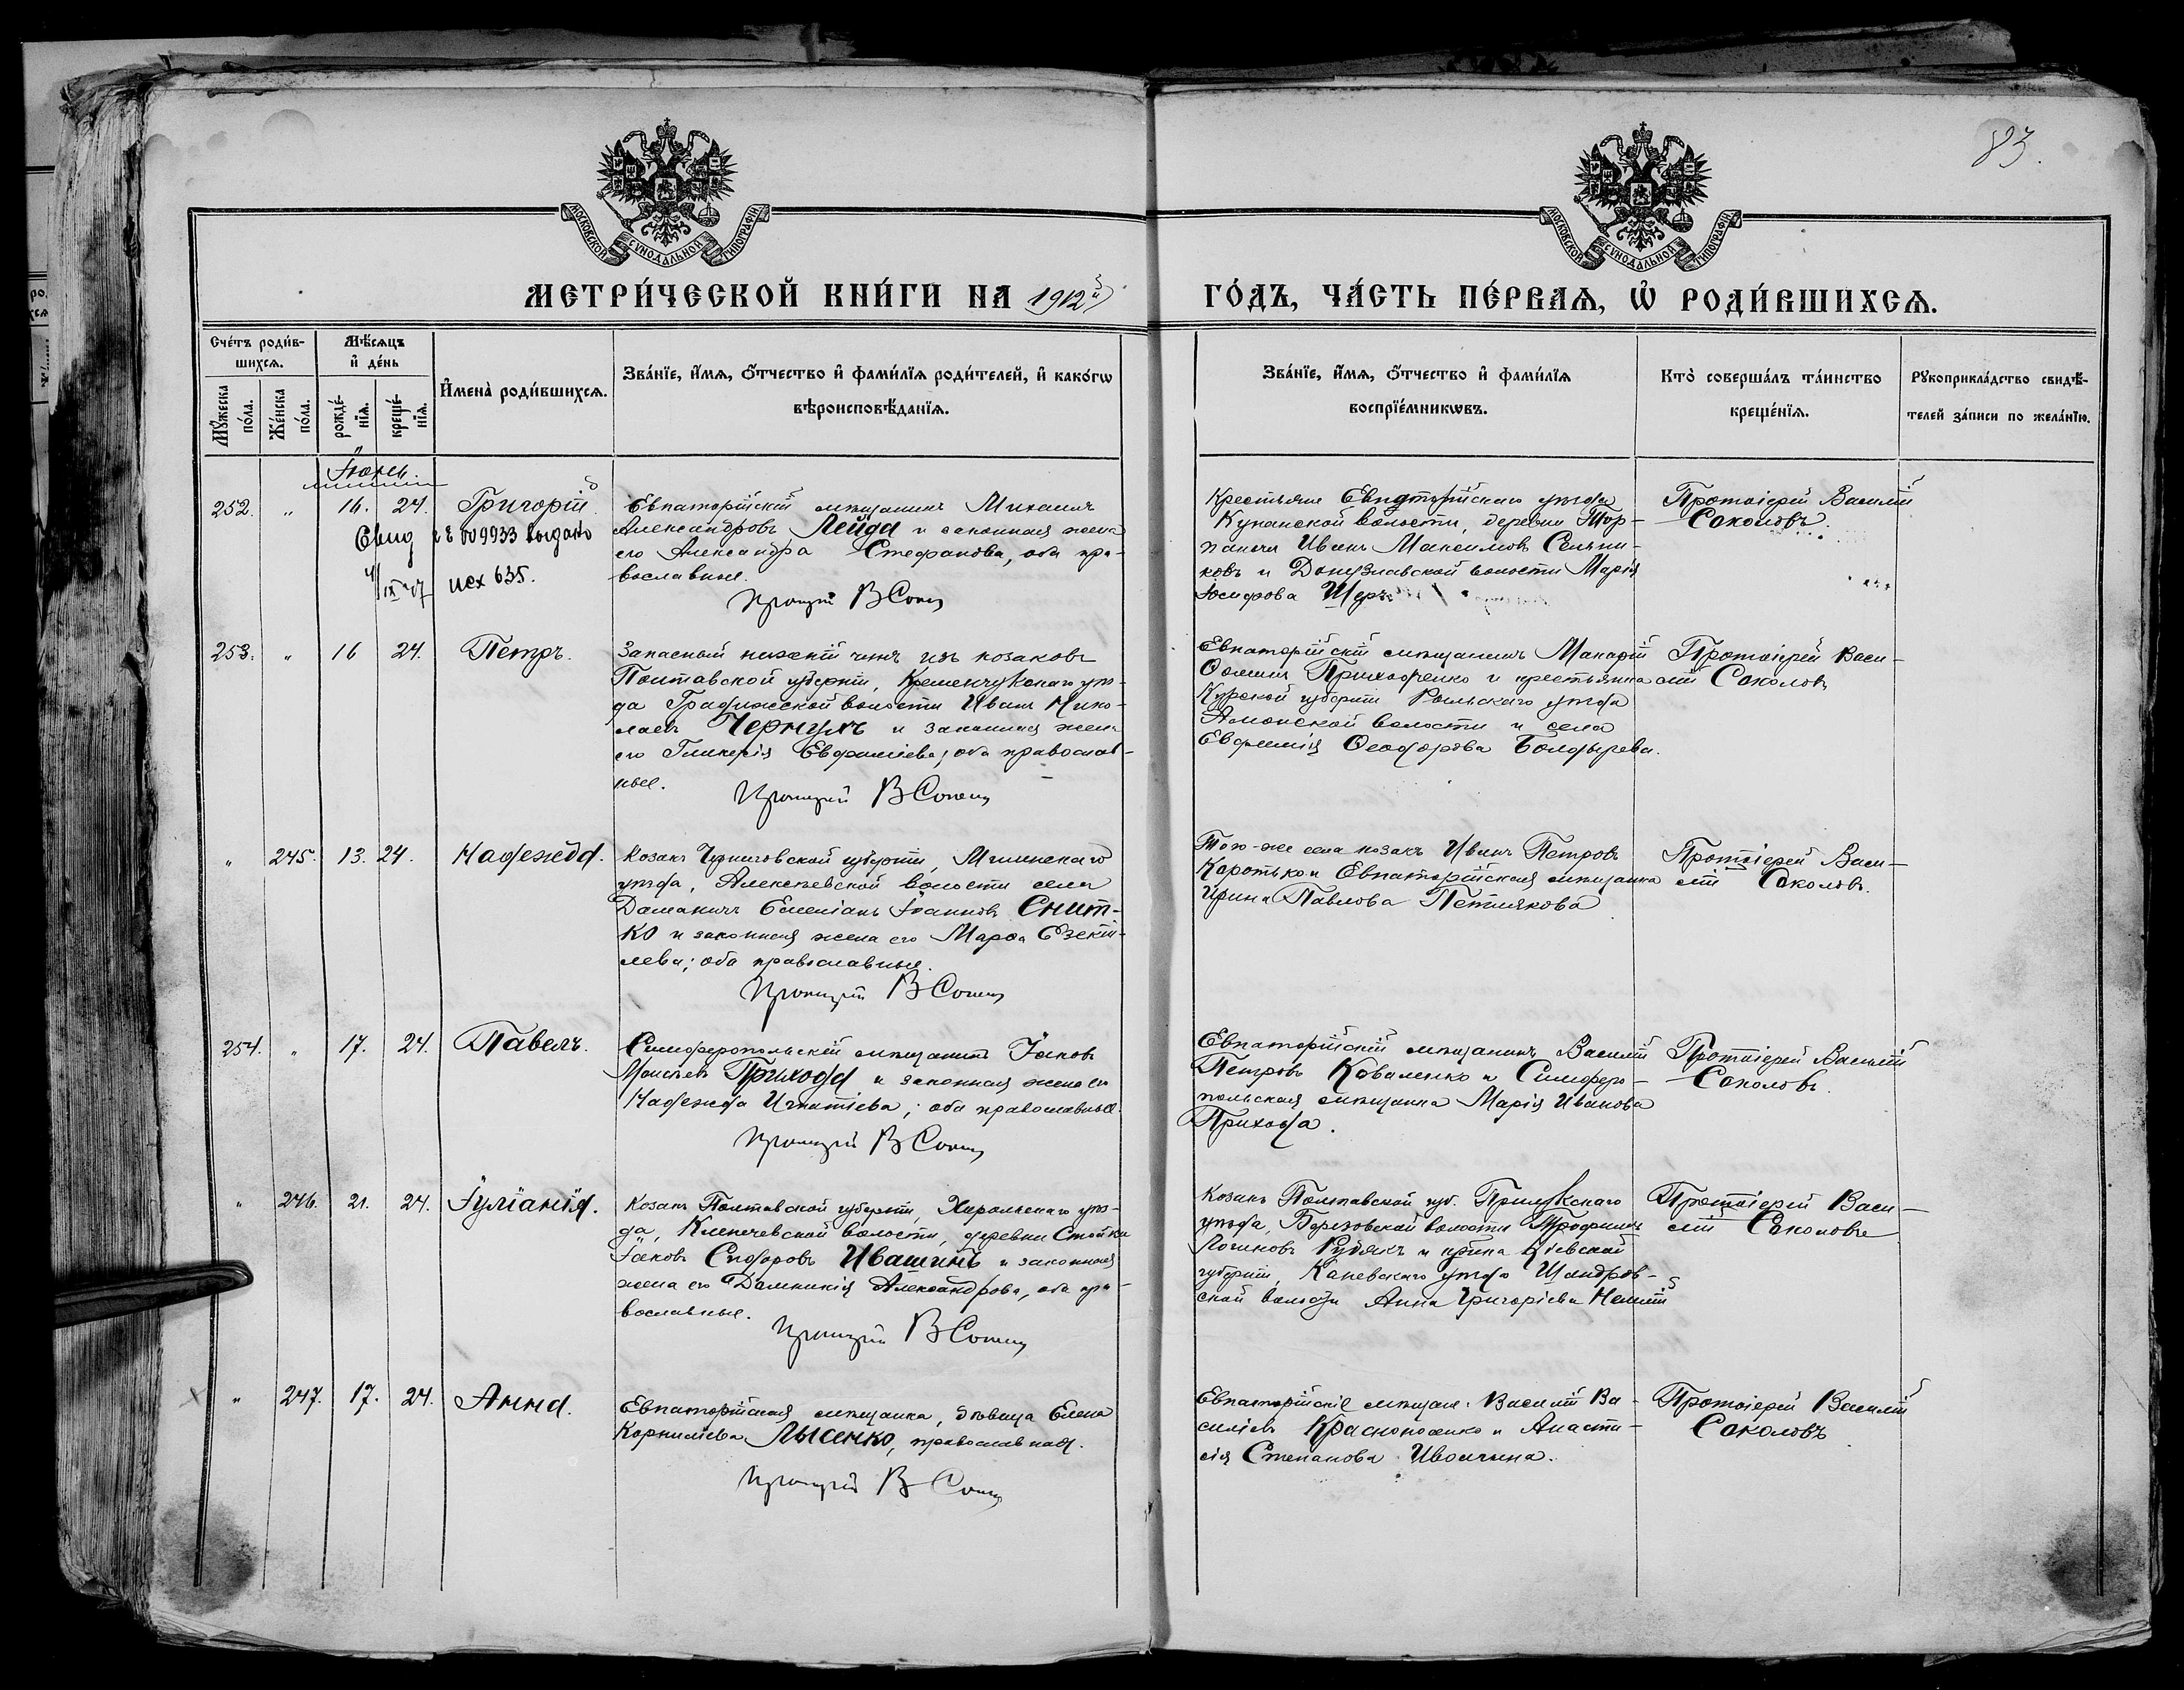 83.
МОСКОВСКОЙ СѴНОДАЛЬНОЙ ТИПОГРАФІИ
МОСКОВСКОЙ СѴНОДАЛЬНОЙ ТИПОГРАФІИ
МЕТРИ́ЧЕСКОЙ КНИ́ГИ НА 1912й
ГО́ДЪ, ЧА́СТЬ ПЕ́РВАѦ, Ѡ҆ РОДИ́ВШИХСѦ.
Сче́тъ роди́в-
шихсѧ.
Мꙋ́жеска
по́ла.
Же́нска
по́ла.
Мѣ́сѧцъ
и҆ де́нь
рожде́-
нїѧ.
креще́-
нїѧ.
И҆мена̀ роди́вшихсѧ.
Зва́нїе, и҆́мѧ, ѻ҆́тчество и҆ фами́лїѧ роди́телей, и҆ како́гѡ
вѣроисповѣ́данїѧ.
Зва́нїе, и҆́мѧ, ѻ҆́тчество и҆ фами́лїѧ
воспрїе́мникѡвъ.
Кто̀ соверша́лъ та́инство
креще́нїѧ.
Рꙋкоприкла́дство свидѣ́-
телей за́писи по жела́нїю.
Іюнь.
252. " 16. 24. Григорій.
Свид 009933 выдано
исх 635.
Евпаторійскій мѣщанинъ Михаилъ
Александровъ Лейда и законная жена
его Александра Стефанова, оба пра-
вославные.
Протоіерей В Соколовъ
Крестьяне Евпаторійскаго уѣзда
Кунанской волости, деревни Тор-
Иванъ Максимовъ
ковъ и Донузлавской волости Марія
Іосифова
Протоіерей Василій
Соколовъ.
253. " 16 24. Петръ.
Запасный нижній чинъ изъ козаковъ
Полтавской губерніи, Кременчукскаго уѣз-
да Градижской волости Иванъ Нико-
лаевъ Чернухъ и законная жена
его Гликерія Евфиміева; оба православ-
ные.
Протоіерей В Соколовъ
Евпаторійскій мѣщанинъ Макарій
Ѳоминъ Приходченко и крестьянка
Курской губерніи Рыльскаго уѣзда
Амонской волости и села
Евфимія Ѳеодорова Болдырева.
Протоіерей Васи-
лій Соколовъ
" 245. 13. 24. Надежда.
Козакъ Черниговской губерніи, Мглинскаго
уѣзда, Алексѣевской волости села
Доманичъ Емеліанъ Іоанновъ Снит-
ко и законная жена его Марѳа Езекіи-
лева; оба православные.
Протоіерей В Соколовъ
Того-же села козакъ Иванъ Петровъ
Коротько и Евпаторійская мѣщанка
Ирина Павлова Петлякова
Протоіерей Васи-
лій Соколовъ.
254. " 17. 24. Павелъ.
Симферопольскій мѣщанинъ Іаковъ
Моисѣевъ Приходд и законная жена его
Надежда Игнатіева; оба православные.
Протоіерей В Соколовъ
Евпаторійскій мѣщанинъ Василій
Петровъ Коваленко и Симферо-
польская мѣщанка Марія Иванова
Прихода.
Протоіерей Василій
Соколовъ.
" 246. 21. 24. Іуліанія.
Козакъ Полтавской губерніи, Хорольскаго уѣз-
да, Клепачевской волости, деревни Стайки
Іаковъ Сидоровъ Ивашинъ и законная
жена его Домникія Александрова, оба пра-
вославные.
Протоіерей В Соколовъ
Козакъ Полтавской губ. Прилукскаго
уѣзда, Березовской волости Трофимъ
Логиновъ Рудякъ и кр-ка Кіевской
губерніи, Каневскаго уѣзда Шандров-
ской волости Анна Григоріева
Протоіерей Васи-
лій Соколовъ
" 247. 17. 24. Анна.
Евпаторійская мѣщанка, дѣвица Елена
Корниліева Лысенко, православная.
Протоіерей В Соколовъ
Евпаторійскіе мѣщане: Василій Ва-
силіевъ Красноноженко и Анаста-
сія Степанова Иволгина.
Протоіерей Василій
Соколовъ